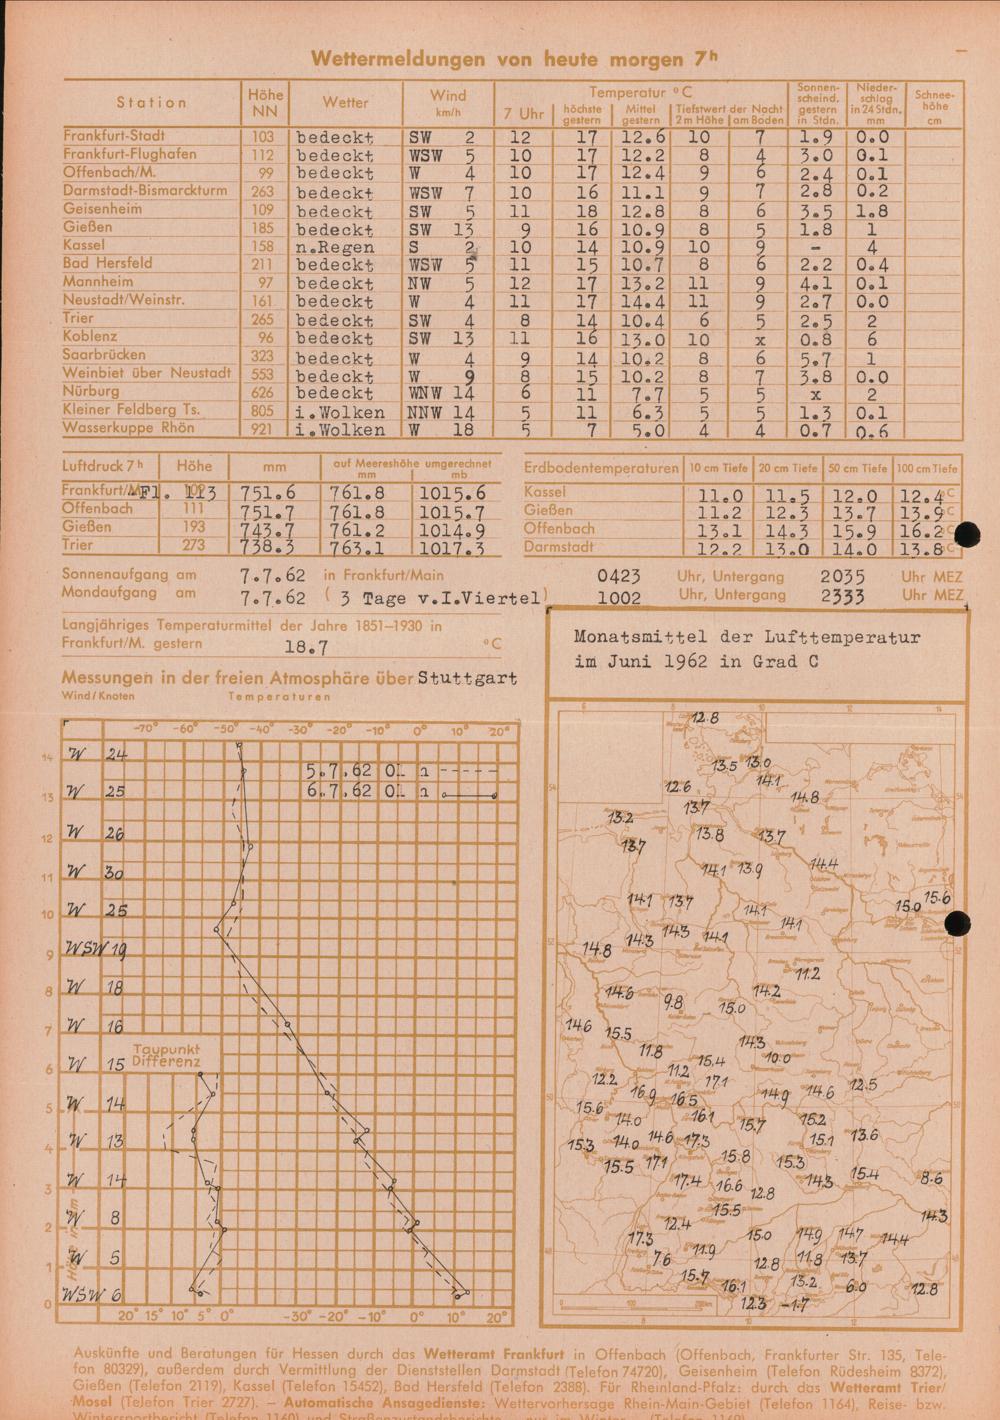 Wettermeldungen von heute morgen 7ʰ
Station Höhe NN Wetter Wind km/h Temperatur °C Sonnenscheind. gestern in Stdn. Niederschlag in 24 Stdn. mm Schneehöhe cm
7 Uhr höchste gestern Mittel gestern Tiefstwert der Nacht 2 m Höhe am Boden
Frankfurt-Stadt 103 bedeckt SW 2 12 17 12.6 10 7 1.9 0.0
Frankfurt-Flughafen 112 bedeckt WSW 5 10 17 12.2 8 4 3.0 0.1
Offenbach/M. 99 bedeckt W 4 10 17 12.4 9 6 2.4 0.1
Darmstadt-Bismarckturm 263 bedeckt WSW 7 10 16 11.1 9 7 2.8 0.2
Geisenheim 109 bedeckt SW 5 11 18 12.8 8 6 3.5 1.8
Gießen 185 bedeckt SW 13 9 16 10.9 8 5 1.8 1
Kassel 158 n.Regen S 2 10 14 10.9 10 9 - 4
Bad Hersfeld 211 bedeckt WSW 5 11 15 10.7 8 6 2.2 0.4
Mannheim 97 bedeckt NW 5 12 17 13.2 11 9 4.1 0.1
Neustadt/Weinstr. 161 bedeckt W 4 11 17 14.4 11 9 2.7 0.0
Trier 265 bedeckt SW 4 8 14 10.4 6 5 2.5 2
Koblenz 96 bedeckt SW 13 11 16 13.0 10 x 0.8 6
Saarbrücken 323 bedeckt W 4 9 14 10.2 8 6 5.7 1
Weinbiet über Neustadt 553 bedeckt W 9 8 15 10.2 8 7 3.8 0.0
Nürburg 626 bedeckt WNW 14 6 11 7.7 5 5 x 2
Kleiner Feldberg Ts. 805 i.Wolken NNW 14 5 11 6.3 5 5 1.3 0.1
Wasserkuppe Rhön 921 i.Wolken W 18 5 7 5.0 4 4 0.7 0.6
Luftdruck 7ʰ Höhe mm auf Meereshöhe umgerechnet mm mb
Frankfurt/M.-Fl. 113 751.6 761.8 1015.6
Offenbach 111 751.7 761.8 1015.7
Gießen 193 743.7 761.2 1014.9
Trier 273 738.3 763.1 1017.3
Erdbodentemperaturen 10 cm Tiefe 20 cm Tiefe 50 cm Tiefe 100 cm Tiefe
Kassel 11.0 11.5 12.0 12.4 °C
Gießen 11.2 12.3 13.7 13.9 °C
Offenbach 13.1 14.3 15.9 16.2 °C
Darmstadt 12.2 13.0 14.0 13.8 °C
Sonnenaufgang am 7.7.62 in Frankfurt/Main 0423 Uhr, Untergang 2035 Uhr MEZ
Mondaufgang am 7.7.62 ( 3 Tage v.I.Viertel) 1002 Uhr, Untergang 2333 Uhr MEZ
Langjähriges Temperaturmittel der Jahre 1851–1930 in
Frankfurt/M. gestern 18.7 °C
Messungen in der freien Atmosphäre über Stuttgart
Wind/Knoten Temperaturen
-70° -60° -50° -40° -30° -20° -10° 0° 10° 20°
5.7.62 01 h
6.7.62 01 h
14 W 24
13 W 25
12 W 26
11 W 30
10 W 25
9 WSW 19
8 W 18
7 W 16
6 W 15
Taupunkt
Differenz
5 W 14
4 W 13
3 W 14
2 W 8
1 W 5
0 WSW 6
Höhe in km
20° 15° 10° 5° 0° -30° -20° -10° 0° 10° 20°
Monatsmittel der Lufttemperatur
im Juni 1962 in Grad C
6 8 10 12 14
12.8
13.5 13.0
12.6 14.1
14.8
13.7
13.2
13.8 13.7
13.7
14.1 13.9 14.4
14.1 13.7 15.0 15.6
14.1
14.3 14.3 14.1 14.1
14.8
11.2
14.6 9.8 14.2
15.0
14.6 15.5
11.8 14.3
15.4 10.0
12.2 11.2 17.1
16.9 16.5 14.9 14.6 12.5
15.6 14.0 16.1 15.7 15.2
15.3 14.0 14.6 17.3 15.1 13.6
15.5 17.1 15.8 15.3
17.4 16.6 12.8 14.3 15.4 8.6
15.5
12.4 14.3
17.3 15.0 14.9 14.7 14.4
7.6 11.9 12.8 11.8 13.7
15.7 16.1 13.2 6.0 12.8
12.3 -1.7
Auskünfte und Beratungen für Hessen durch das Wetteramt Frankfurt in Offenbach (Offenbach, Frankfurter Str. 135, Tele-
fon 80329), außerdem durch Vermittlung der Dienststellen Darmstadt (Telefon 74720), Geisenheim (Telefon Rüdesheim 8372),
Gießen (Telefon 2119), Kassel (Telefon 15452), Bad Hersfeld (Telefon 2388). Für Rheinland-Pfalz: durch das Wetteramt Trier/
Mosel (Telefon Trier 2727). – Automatische Ansagedienste: Wettervorhersage Rhein-Main-Gebiet (Telefon 1164), Reise- bzw.
Wintersportbericht (Telefon 1160) und Straßenzustandsberichte – nur im Winter – (Telefon 1169)